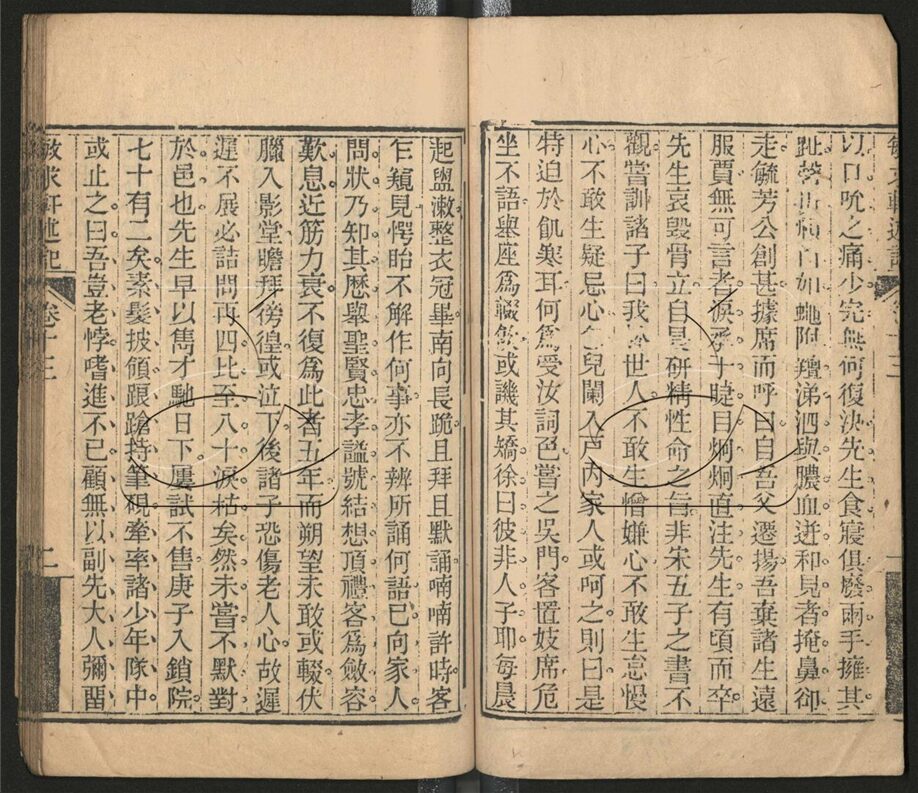 以口吮之痛少完無何復決先生食寢俱廢兩手擁其
趾 如 附羶涕泗與膿血迸和見者掩鼻卻
走毓芳公創甚據席而呼曰自吾父遷揚吾棄諸生遠
服賈無可言者淚承于睫目炯炯直注先生有頃而卒
先生哀毀骨立自是研精性命之旨非宋五子之書不
觀嘗訓諸子曰我於世人不敢生憎嫌心不敢生怠慢
心不敢生疑忌心 兒闌入戶內家人或呵之則曰是
特迫於飢寒耳何爲受汝詞色嘗之吳門客置妓席危
坐不語舉座爲輟飲或譏其矯徐曰彼非人子耶每晨
起盥漱整衣冠畢南向長跪且拜且默誦喃喃許時客
乍窺見愕眙不解作何事亦不辨所誦何語已向家人
問狀乃知其歷舉聖賢忠孝謚號結想頂禮客爲斂容
歎息近筋力衰不復爲此者五年而朔望未敢或輟伏
臘入影堂瞻拜徬徨或泣下後諸子恐傷老人心故遲
遲不展必詰問再四比至八十淚枯矣然未嘗不默對
於邑也先生早以雋才馳日下屢試不售庚子入鎖院
七十有二矣素髮披領踉蹌持筆硯牽率諸少年隊中
或止之曰吾豈老悖嗜進不已顧無以副先大人彌留
敏求軒述記 卷十三 二